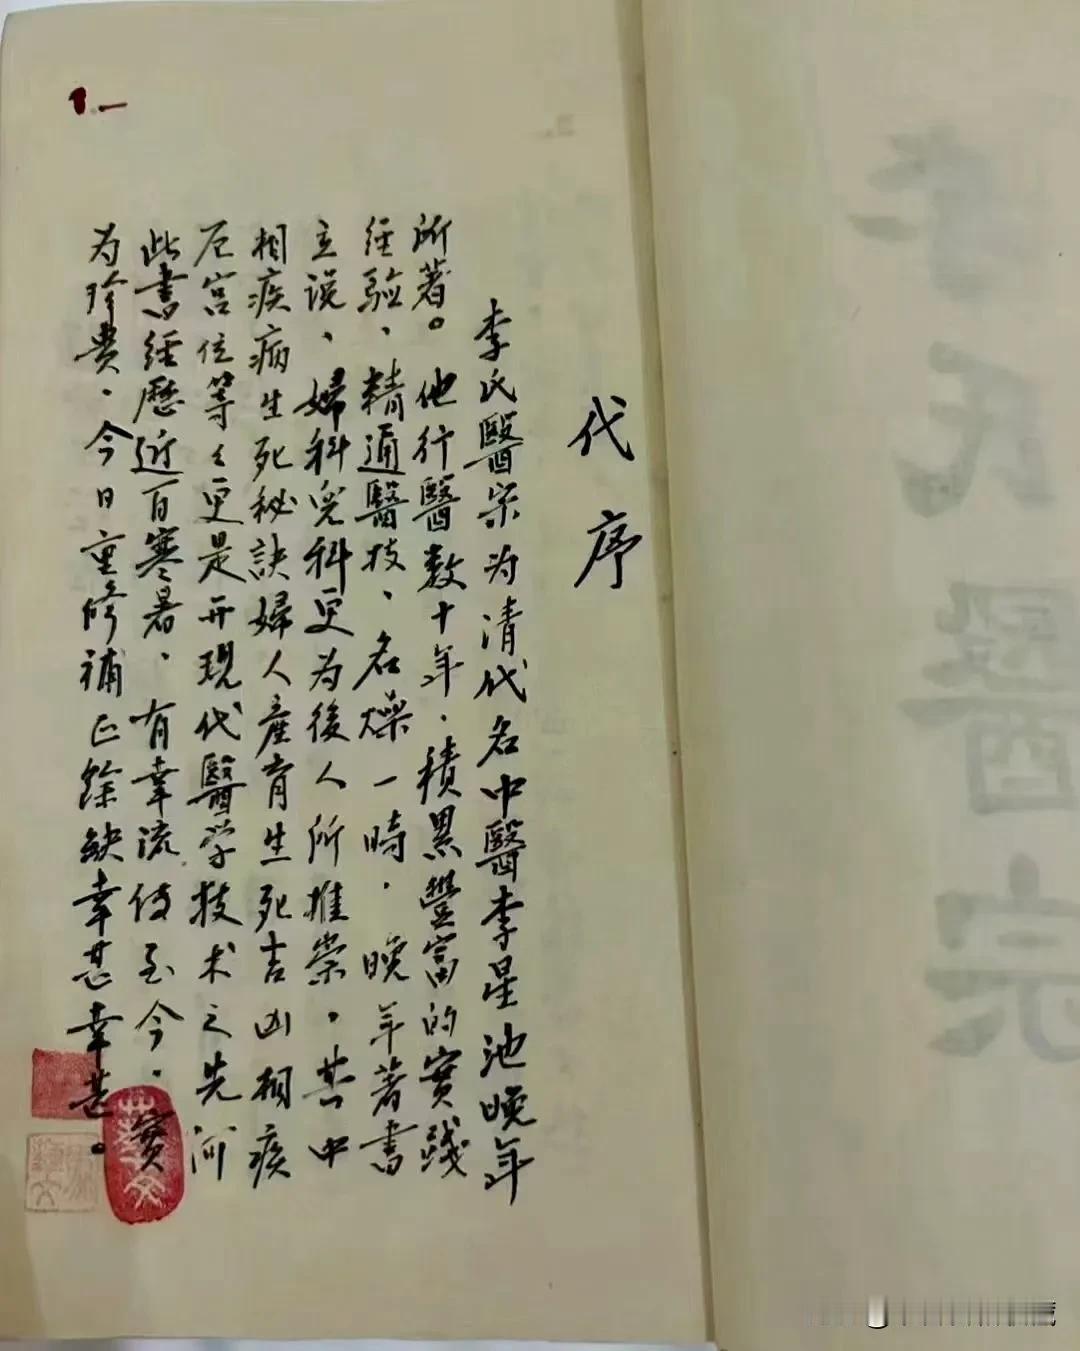 代序
李氏醫宗为清代名中醫李星池晚年
所著。他行醫数十年、積累豐富的實踐
经验、精通醫技、名燥一時、晚年著書
立说、婦科兒科更为後人所推崇。其中
相疾病生死秘訣婦人産育生死吉凶相疾
厄宫位等々更是开現代醫学技术之先河
此書经歷近百寒暑、有幸流传至今、實
为珍贵、今日重修補正餘缺幸甚幸甚。
李氏醫宗